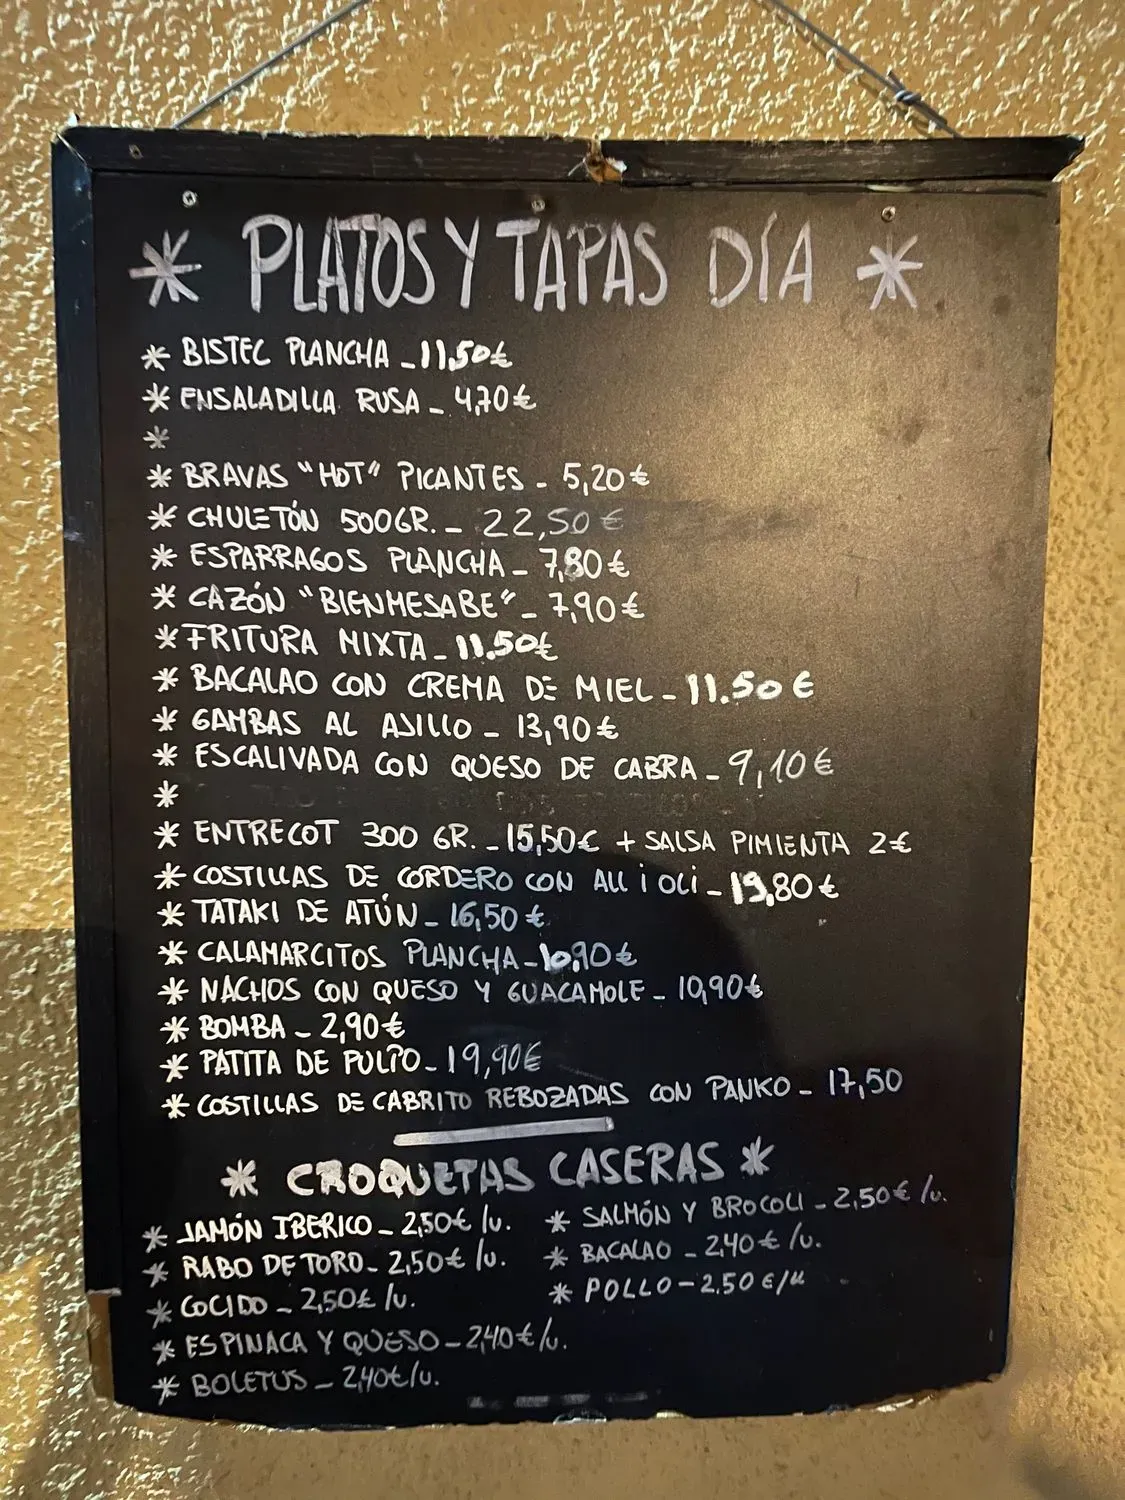 * PLATOS Y TAPAS DÍA *
* BISTEC PLANCHA - 11,50€
* ENSALADILLA RUSA - 4,70€
*
* BRAVAS "HOT" PICANTES - 5,20€
* CHULETÓN 500GR. - 22,50€
* ESPARRAGOS PLANCHA - 7,80€
* CAZÓN "BIENMESABE" - 7,90€
* FRITURA MIXTA - 11.50€
* BACALAO CON CREMA DE MIEL - 11.50€
* GAMBAS AL AJILLO - 13,90€
* ESCALIVADA CON QUESO DE CABRA - 9,10€
*
* ENTRECOT 300 GR. - 15,50€ + SALSA PIMIENTA 2€
* COSTILLAS DE CORDERO CON ALL i OLi - 19,80€
* TATAKI DE ATÚN - 16,50€
* CALAMARCITOS PLANCHA - 10,90€
* NACHOS CON QUESO Y GUACAMOLE - 10,90€
* BOMBA - 2,90€
* PATITA DE PULPO - 19,90€
* COSTILLAS DE CABRITO REBOZADAS CON PANKO - 17,50
* CROQUETAS CASERAS *
* JAMÓN IBERICO - 2,50€ /u.
* RABO DE TORO - 2,50€ /u.
* COCIDO - 2,50€ /u.
* ESPINACA Y QUESO - 2,40€/u.
* BOLETUS - 2,40€/u.
* SALMÓN Y BROCOLI - 2,50€ /u.
* BACALAO - 2,40€ /u.
* POLLO - 2.50€/u